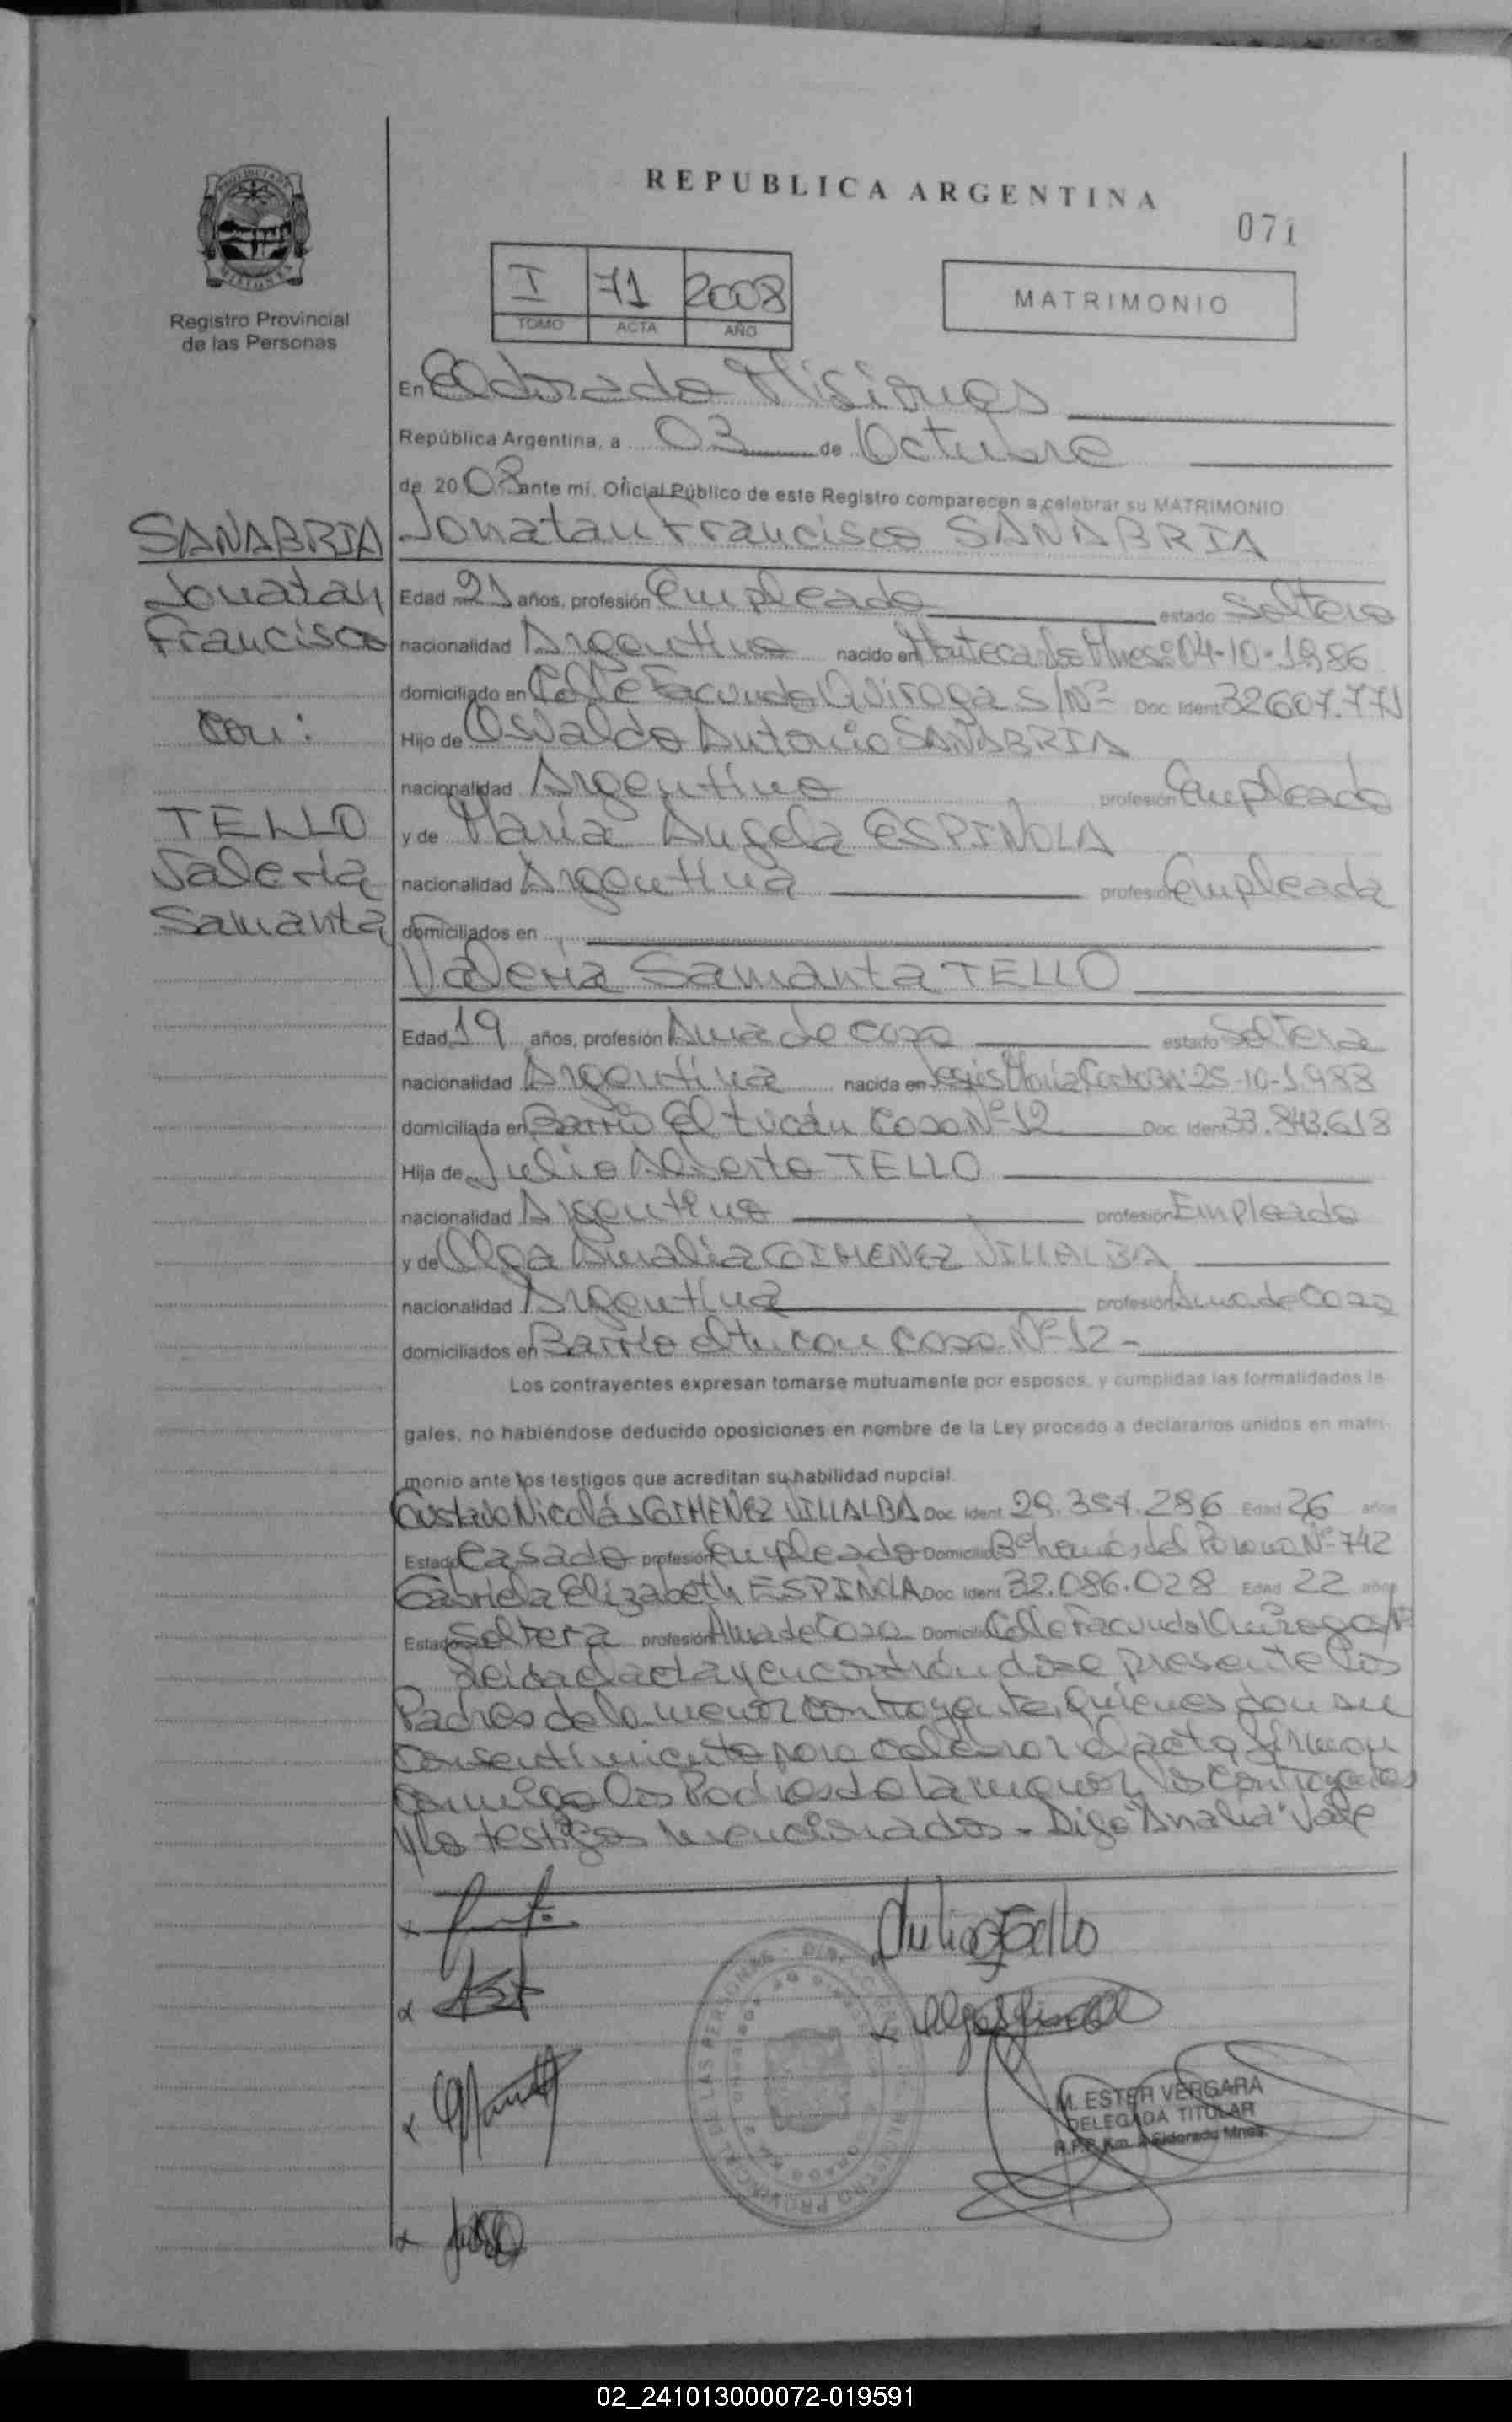 REPUBLICA ARGENTINA
071
I 71 2008
TOMO ACTA AÑO
MATRIMONIO
PROVINCIA DE
MISIONES
Registro Provincial
de las Personas
En Eldorado Misiones
República Argentina, a 03 de Octubre
de 2008 ante mí, Oficial Público de este Registro comparecen a celebrar su MATRIMONIO
SANABRIA
Jonatan
Francisco
con:
TELLO
Valeria
Samanta
Jonatan Francisco SANABRIA
Edad 21 años, profesión Empleado estado Soltero
nacionalidad Argentino nacido en Montecarlo Mnes: 04-10-1986
domiciliado en Calle Facundo Quiroga S/Nº Doc. Ident 32607.771
Hijo de Osvaldo Antonio SANABRIA
nacionalidad Argentino profesión Empleado
y de María Angela ESPINOLA
nacionalidad Argentina profesión Empleada
domiciliados en
Valeria Samanta TELLO
Edad 19 años, profesión Ama de casa estado Soltera
nacionalidad Argentina nacida en Jesús María 25-10-1988
domiciliada en Barrio El tucán Casa Nº 12 Doc. Ident 33.843.618
Hija de Julio Alberto TELLO
nacionalidad Argentino profesión Empleado
y de Olga Amalia GIMENEZ VILLALBA
nacionalidad Argentina profesión Ama de Casa
domiciliados en Barrio el tucan casa Nº 12-
Los contrayentes expresan tomarse mutuamente por esposos, y cumplidas las formalidades le-
gales, no habiéndose deducido oposiciones en nombre de la Ley procedo a declararlos unidos en matri-
monio ante los testigos que acreditan su habilidad nupcial.
Gustavo Nicolás GIMENEZ VILLALBA Doc. Ident 29.357.286 Edad 26 años
Estado Casado profesión Empleado Domicilio del Parana Nº 742
Gabriela Elizabeth ESPINOLA Doc. Ident 32.086.028 Edad 22 años
Estado Soltera profesión Ama de Casa Domicilio Calle Facundo Quiroga S/Nº
Leida el acta y encontrándose presente los
Padres de la menor contrayente, quienes dan su
consentimiento para celebrar el acto, firman
conmigo los Padres de la menor, los contrayentes
y los testigos mencionados.- Digo "Analia" Vale
Julio Tello
M. ESTER VERGARA
DELEGADA TITULAR
R.P.P. Km. Eldorado Mnes.
02_241013000072-019591